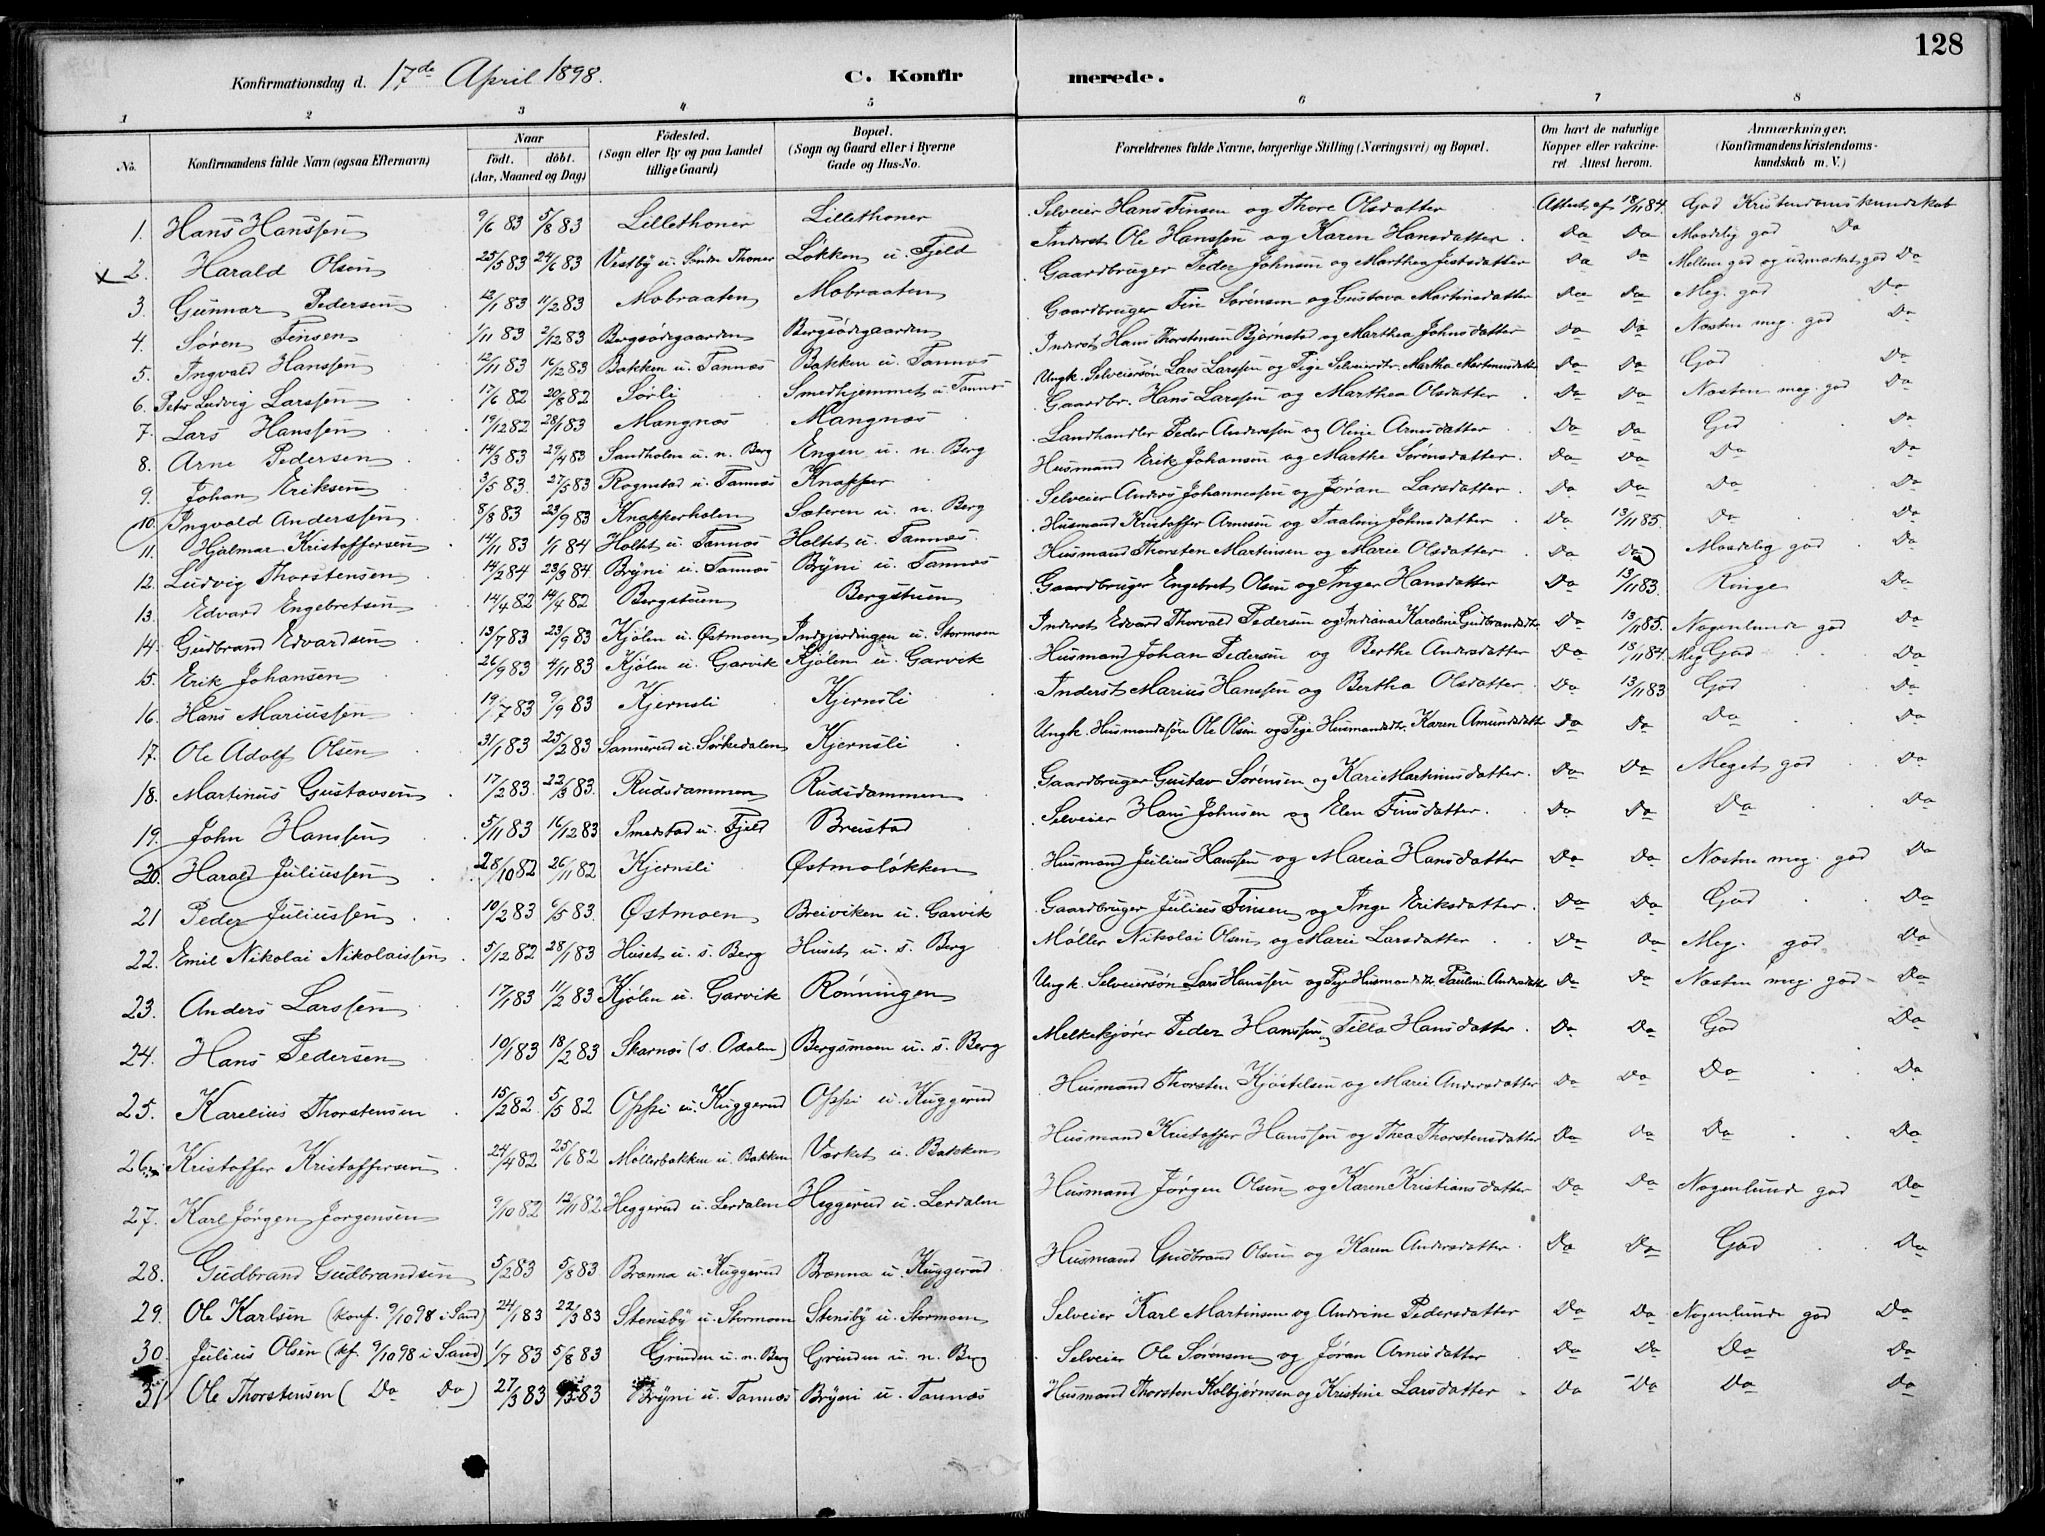 128
Konfirmationsdag d. 17de April 1898. C. Konfirmerede.
1 2 3 4 5 6 7 8
No. Konfirmandens fulde Navn (ogsaa Efternavn) Naar født. døbt. (Aar, Maaned og Dag) Fødested. (Sogn eller By og paa Landet tillige Gaard) Bopæl. (Sogn og Gaard eller i Byerne Gade og Hus-No. Forældrenes fulde Navne, borgerlige Stilling (Næringsvei) og Bopæl. Om havt de naturlige Kopper eller vakcineret. Attest herom. Anmærkninger. (Konfirmandens Kristendomskundskab m. V.)
1. Hans Hanssen 9/6 83 5/8 83 Lillethoner Lillethoner Selveier Hans Finsen og Thore Olsdatter Attest af 18/11 84. God Kristendomskundskab
2. Harald Olsen 25/5 83 24/6 83 Vestby u. Søndre Thoner Løkken u. Fjeld Inderst Ole Hanssen og Karen Hansdatter Do Do Maadelig god Do
3. Gunnar Pedersen 12/1 83 11/2 83 Mobraaten Mobraaten Gaardbruger Peder Johnsen og Marthea Do Do Mellem god og udmærket god Do
4. Søren Finsen 1/11 83 2/12 83 Bergsødegaarden Bergsødegaarden Gaardbruger Fin Sørensen og Gustava Martinsdatter Do Do Meg. god Do
5. Ingvald Hanssen 12/11 83 16/12 83 Bakken u. Tannæs Bakken u. Tannæs Inderst Hans Thorstensen Bjørnstad og Marthea Johnsdatter Do Do Næsten meg. god Do
6. Peter Ludvig Larssen 17/6 82 20/8 82 Sørli Smedhjemmet u. Tannæs Ungk. Selveiersøn Lars Larssen og Pige Selveierdtr. Martha Martinusdatter Do Do God Do
7. Lars Hanssen 19/12 82 28/1 83 Mangnæs Mangnæs Gaardbr. Hans Larssen og Marthea Olsdatter Do Do Næsten meg. god Do
8. Arne Pedersen 14/3 83 29/4 83 Sandholen u. n. Berg Engen u. n. Berg Landhandler Peder Anderssen og Oline Arnesdatter Do Do God Do
9. Johan Eriksen 3/5 83. 27/5 83 Rognstad u. Tannæs Knapper Husmand Erik Johansen og Marthe Sørensdatter. Do Do Do Do
10. Ingvald Anderssen 8/8 83 23/9 83 Knapperholen Sæteren u. n. Berg Selveier Anders Johannessen og Jøran Larsdatter Do Do Do Do
11. Hjalmar Kristoffersen 14/11 83 1/1 84 Holtet u. Tannæs Holtet u. Tannæs. Husmand Kristoffer Arnesen og Paaline Johnsdatter Do 13/11 85. Do Do
12. Ludvig Thorstensen 14/2 84 23/3 84. Bryni u. Tannæs Bryni u. Tannæs Husmand Thorsten Martinsen og Marie Olsdatter Do Do Maadelig god Do
13. Edvard Engebretsen 14/4 82 14/4 82 Bergstuen Bergstuen Gaardbruger Engebret Olsen og Inger Hansdatter Do 13/11 83. Ringe Do
14. Gudbrand Edvardsen 13/7 83 23/9 83 Kjølen u. Østmoen Indgjerdingen u. Stormoen Inderst Edvard Thorvald Pedersen og Indiana Karoline Gudbrandsdtr. Do 13/11 85. Nogenlunde god Do
15. Erik Johansen 26/9 83 4/11 83 Kjølen u. Garvik Kjølen u. Garvik Husmand Johan Pedersen og Berthe Andersdatter Do 18/11 84. Meg God Do
16. Hans Mariussen 19/7 83 9/9 83 Kjernsli Kjernsli Inderst Marius Hanssen og Bertha Olsdatter Do 13/11 83 God Do
17. Ole Adolf Olsen 31/1 83 25/2 83 Sannerud u. Sørkedalen Kjernsli Ungk. Husmandssøn Ole Olsen og Pige Husmandsdtr. Karen Amundsdatter Do Do Do Do
18. Martinus Gustavsen 17/2 83. 22/3 83. Rudsdammen Rudsdammen Gaardbruger Gustav Sørensen og Kari Martinusdatter. Do Do Meget god Do
19. John Hanssen 5/11 83 16/12 83 Smedstad u. Fjeld Breistad Selveier Hans Johnsen og Elen Finsdatter. Do Do Do Do
20. Harald Juliussen 28/10 82 26/11 82 Kjernsli Østmoløkken Husmand Julius Hanssen og Maria Hansdatter Do Do Næsten meg. god Do
21 Peder Juliussen 10/2 83 6/5 83. Østmoen Breiviken u. Garvik Gaardbruger Julius Finsen og Inge Eriksdatter. Do Do God Do
22. Emil Nikolai Nikolaissen 5/12 82 28/1 83 Huset u. s. Berg Huset u. s. Berg Møller Nikolai Olsen og Marie Larsdatter Do Do Meg. god Do
23. Anders Larssen 17/1 83 11/2 83 Kjølen u. Garvik Rønningen Ungk. Selveiersøn Lars Hanssen og Pige Husmandsdtr. Pauline Andersdatter Do Do Næsten meg. god Do
24. Hans Pedersen 10/1 83 18/2 83 Skarnæs (s. Odalen) Bergsmoen u. s. Berg Melkekjører Peder Hanssen og Tilla Hansdatter. Do Do God Do
25. Karelius Thorstensen 15/2 82 5/5 82 Oppi u. Kuggerud Oppi u. Kuggerud Husmand Thorsten Kjøstelsen og Marie Andersdatter Do Do Do Do
26. Kristoffer Kristoffersen 24/4 82 25/6 82 Møllerbakken u. Bakken Værket u. Bakken Husmand Kristoffer Hanssen og Thea Thorstensdatter Do Do Do Do
27. Karl Jørgen Jørgensen 9/10 82 12/11 82 Heggerud u. Lerdalen Heggerud u. Lerdalen Husmand Jørgen Olsen og Karen Kristiansdatter Do Do Nogenlunde god Do
28. Gudbrand Gudbrandsen 5/2 83 5/8 83 Brænna u. Kuggerud Brænna u. Kuggerud Husmand Gudbrand Olsen og Karen Andersdatter. Do Do God Do
29. Ole Karlsen (konf. 9/10 98 i Sand) 24/1 83 22/3 83 Stensby u. Stormoen Stensby u. Stormoen Selveier Karl Martinsen og Andrine Pedersdatter Do Do Nogenlunde god Do
30. Julius Olsen (kf. 9/10 98 i Sand) 1/7 83 5/8 83 Grinden u. n. Berg Grinden u. n. Berg Selveier Ole Sørensen og Jøran Arnesdatter Do Do Do Do
31 Ole Thorstensen (Do Do) 27/3 83 83 Bryni u. Tannæs Bryni u. Tannæs Husmand Thorsten Kolbjørnsen og Kristine Larsdatter Do Do Do Do